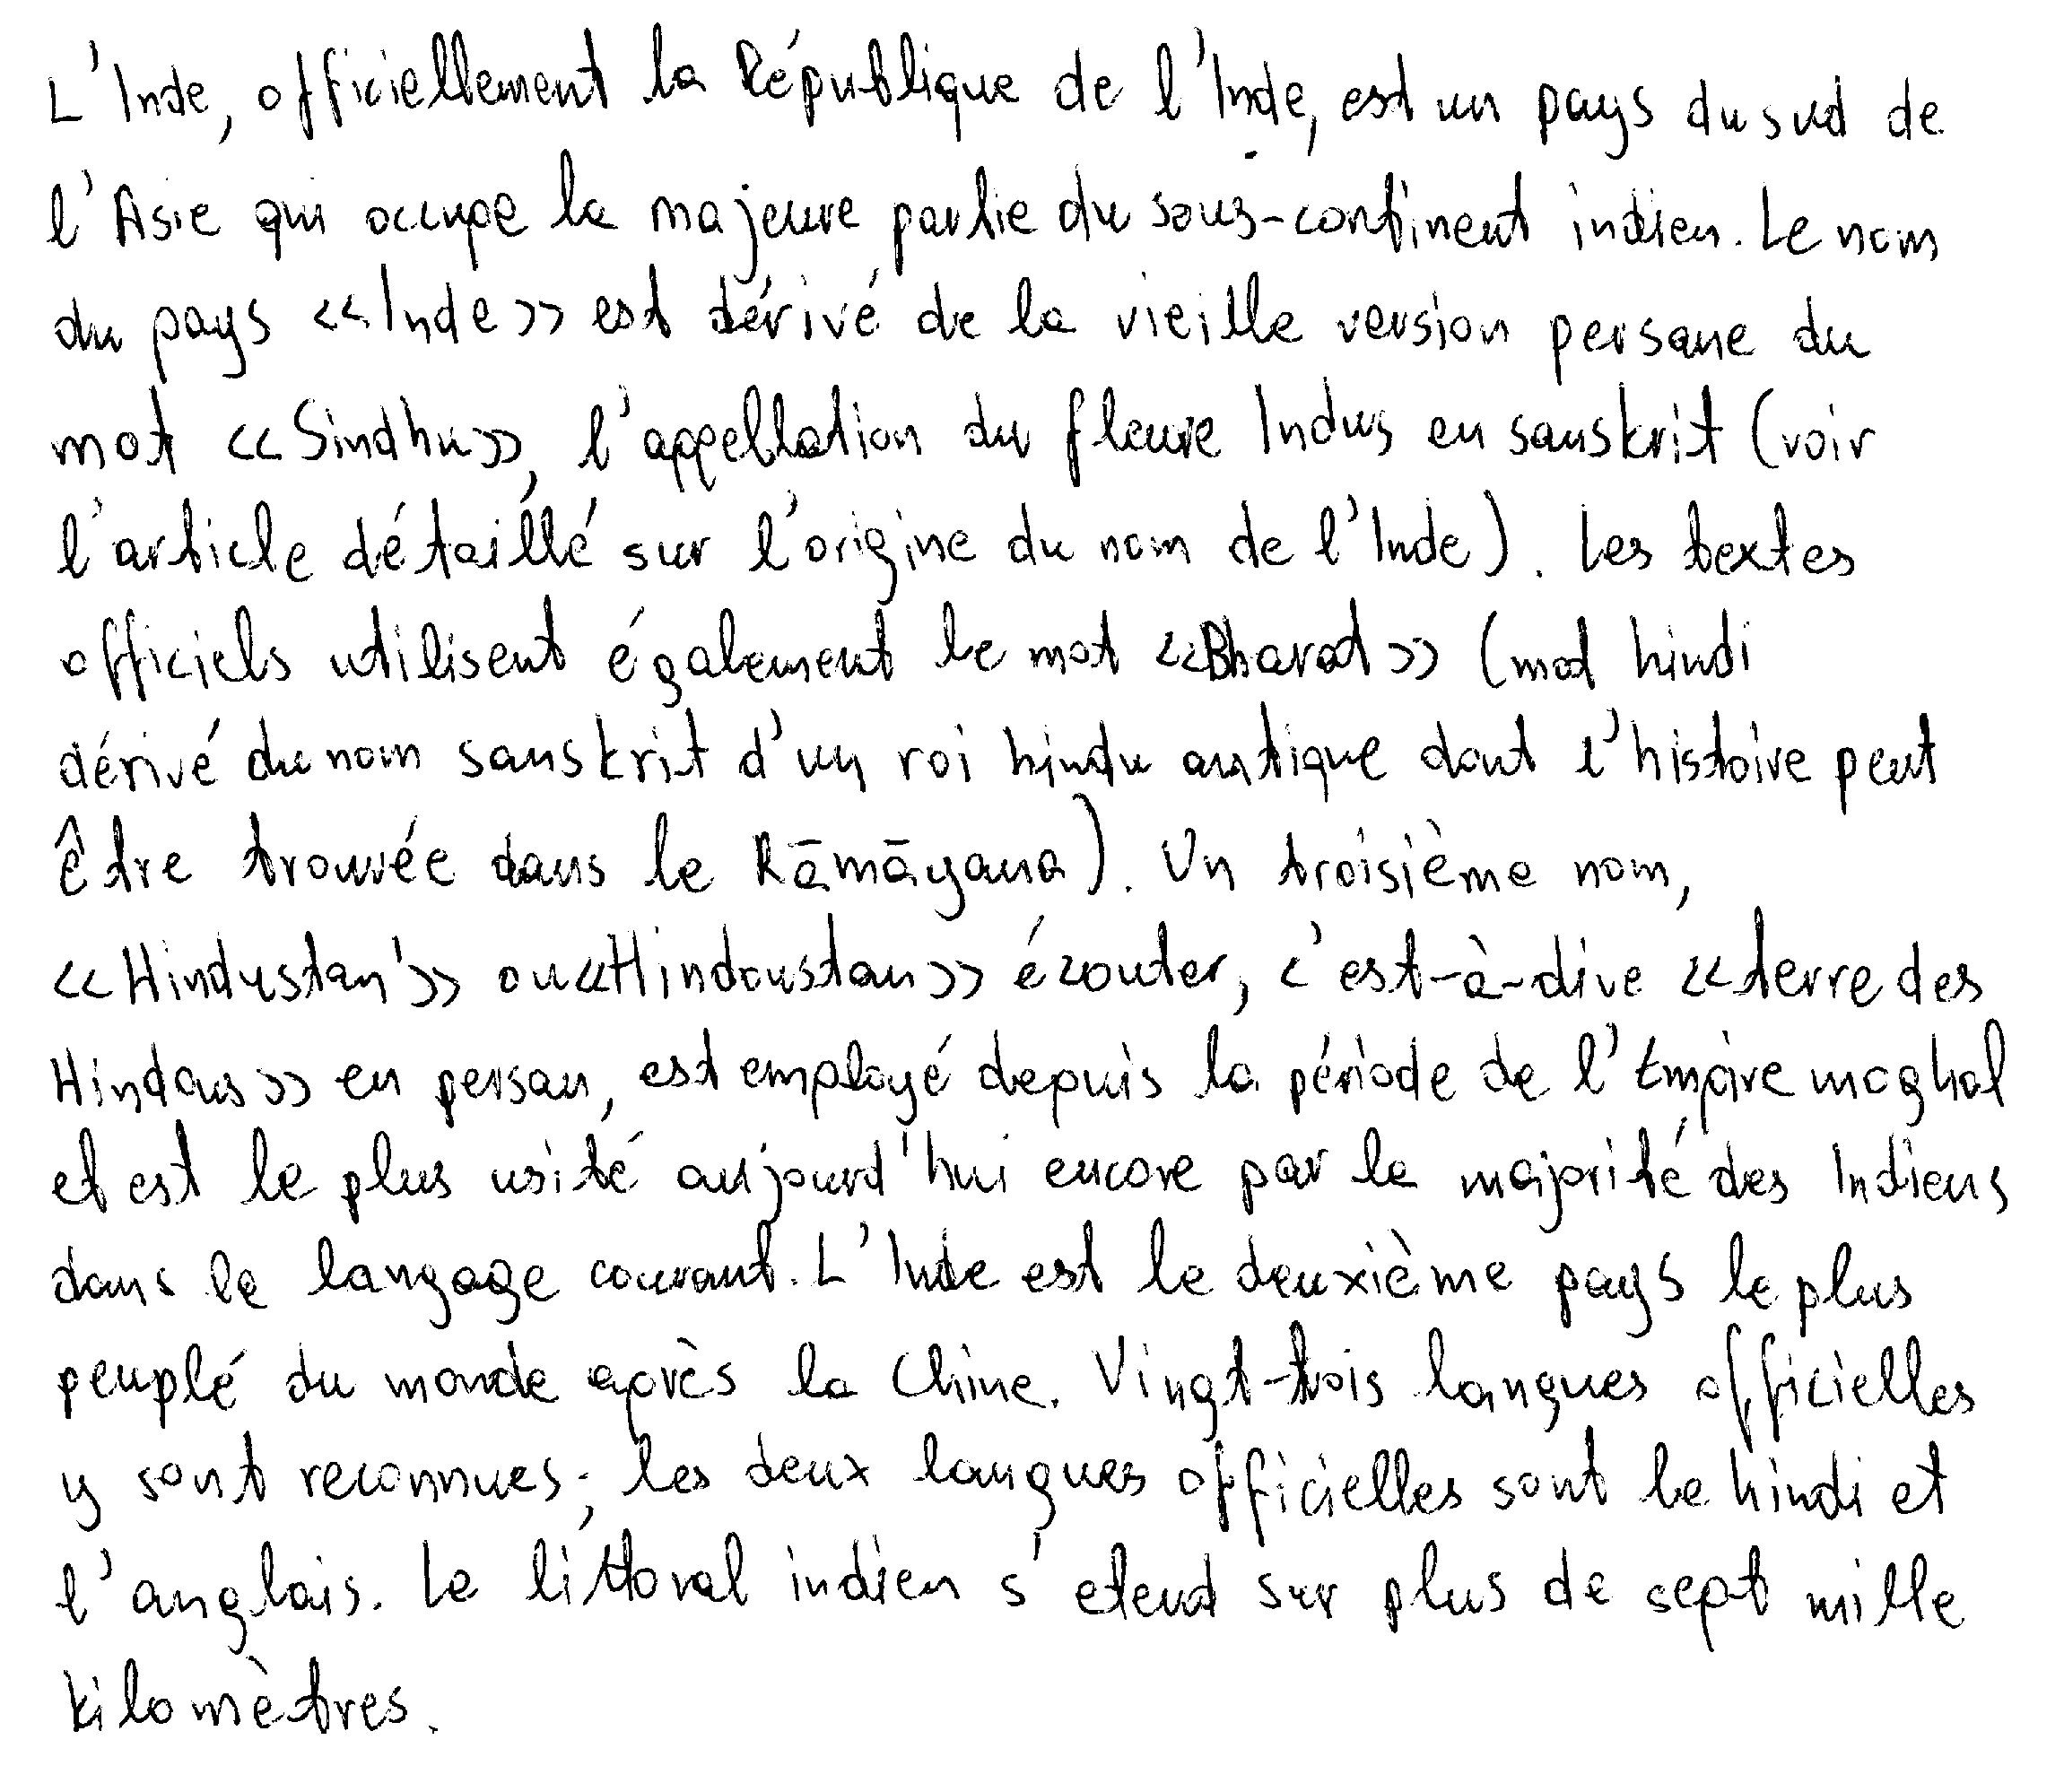 L'Inde, officiellement la République de l'Inde, est un pays du sud de
l'Asie qui occupe la majeure partie du sous-continent indien. Le nom
du pays <<Inde>> est dérivé de la vieille version persane du
mot <<Sindhu>>, l'appellation du fleuve Indus en sanskrit (voir
l'article détaillé sur l'origine du nom de l'Inde). Les textes
officiels utilisent également le mot <<Bharat>> (mot hindi
dérivé du nom sanskrit d'un roi hindu antique dont l'histoire peut
être trouvée dans le Rāmāyana). Un troisième nom,
<<Hindustan'>> ou <<Hindoustan>> écouter, c'est-à-dire <<terre des
Hindous>> en persan, est employé depuis la période de l'Empire moghol
et est le plus usité aujourd'hui encore par la majorité des Indiens
dans le langage courant. L'Inde est le deuxième pays le plus
peuplé du monde après la Chine. Vingt-trois langues officielles
y sont reconnues; les deux langues officielles sont le hindi et
l'anglais. Le littoral indien s'etend sur plus de sept mille
kilomètres.